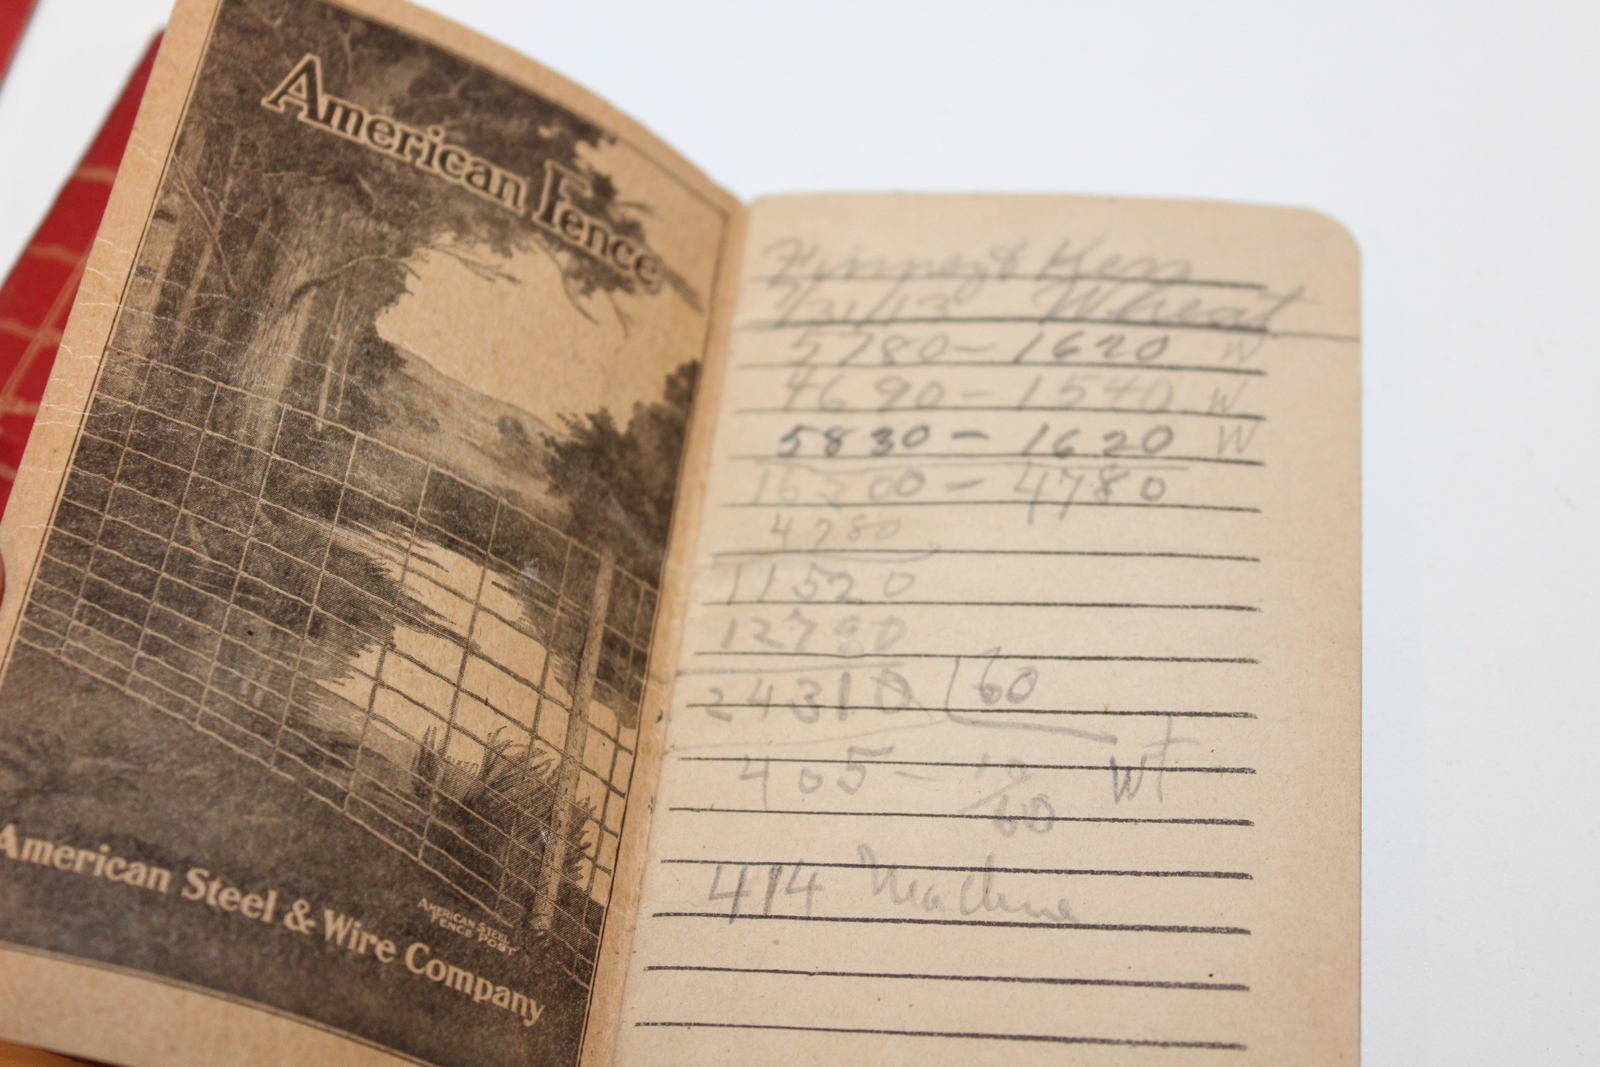 American Fence
AMERICAN STEEL
FENCE POST
American Steel & Wire Company
Finney & Kerr
7/31/13 Wheat
5780 - 1620 W
4690 - 1540 W
5830 - 1620 W
16300 - 4780
4780
11520
12790
24310 60
405 - 10/60 WT
414 Machine